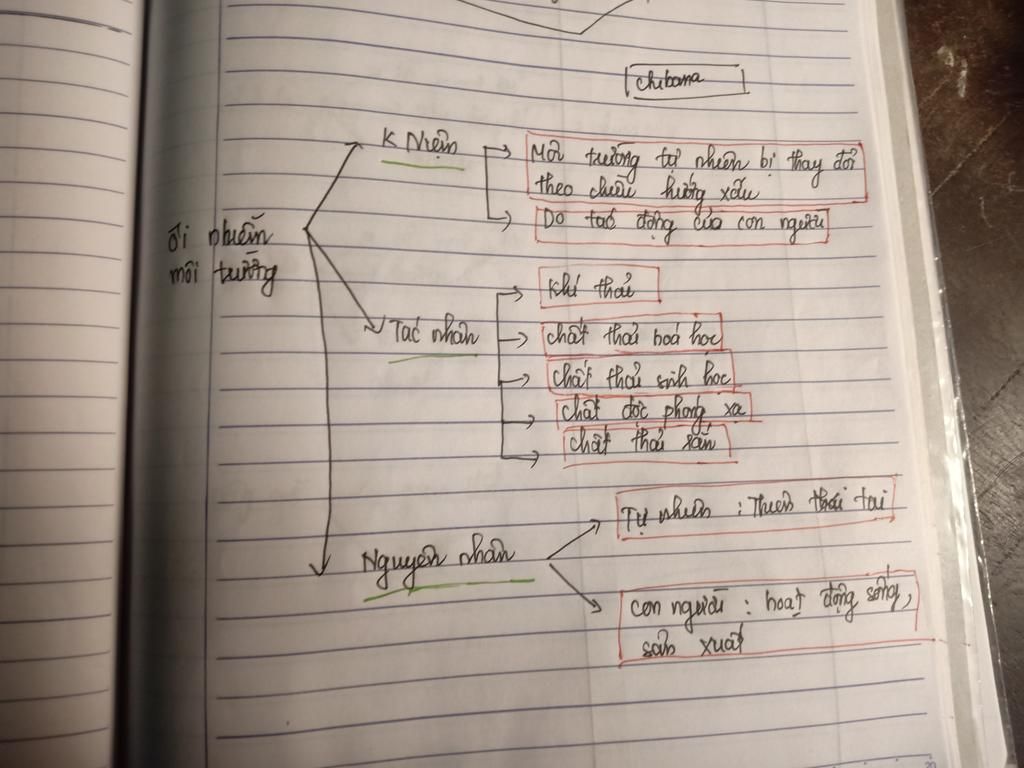 chibama
K Niệm
Môi trường tự nhiên bị thay đổi
theo chiều hướng xấu
Do tác động của con người
Ôi nhiễm
môi trường
Tác nhân
Khí thải
chất thải hoá học
chất thải sinh học
chất độc phóng xạ
chất thải rắn
Nguyên nhân
Tự nhiên : Thiên tai
con người : hoạt động sống,
sản xuất